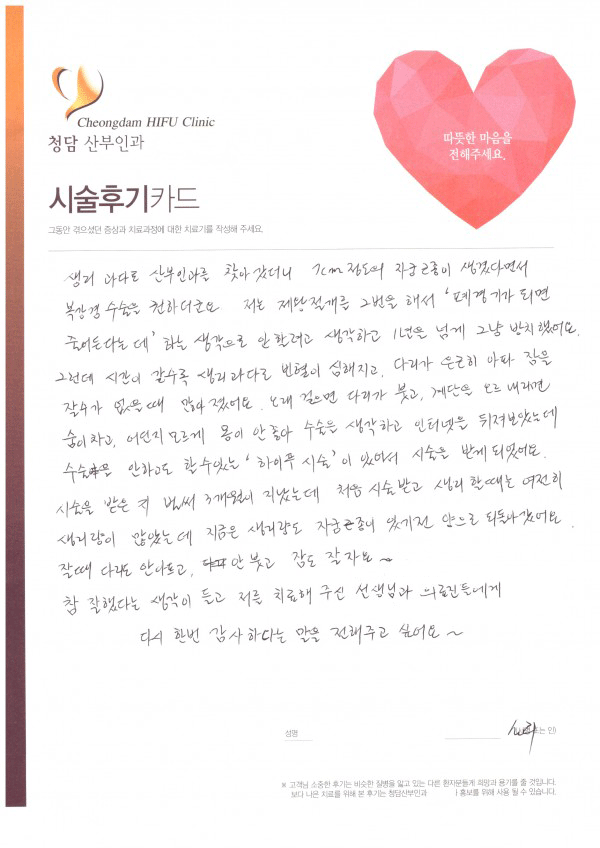 Cheongdam HIFU Clinic
청담 산부인과
따뜻한 마음을
전해주세요.
시술후기카드
그동안 겪으셨던 증상과 치료과정에 대한 치료기를 작성해 주세요.
생리 과다로 산부인과를 찾아갔더니 7cm정도의 자궁근종이 생겼다면서
복강경 수술을 권하더군요 저는 제왕절개를 2번을 해서 '폐경기가 되면
줄어든다는데' 하는 생각으로 안할려고 생각하고 1년을 넘게 그냥 방치했어요.
그런데 시간이 갈수록 생리과다로 빈혈이 심해지고, 다리가 은근히 아파 잠을
잘수가 없을때 많아졌어요. 오래 걸으면 다리가 붓고, 계단을 오르내리면
숨이차고, 어딘지 모르게 몸이 안좋아 수술을 생각하고 인터넷을 뒤져보았는데
수술은 안하고도 할수있는 '하이푸시술'이 있어서 시술을 받게 되었어요.
시술을 받은지 벌써 3개월이 지났는데 처음 시술받고 생리할때는 여전히
생리량이 많았는데 지금은 생리량도 자궁근종이 있기전 양으로 되돌아갔어요.
잘때 다리도 안아프고, 안붓고 잠도 잘자요~
참 잘했다는 생각이 들고 저를 치료해 주신 선생님과 의료진들에게
다시 한번 감사하다는 말을 전해주고 싶어요~
성명
또는 인)
※ 고객님 소중한 후기는 비슷한 질병을 앓고 있는 다른 환자분들게 희망과 용기를 줄 것입니다.
보다 나은 치료를 위해 본 후기는 청담산부인과 홍보를 위해 사용 될 수 있습니다.